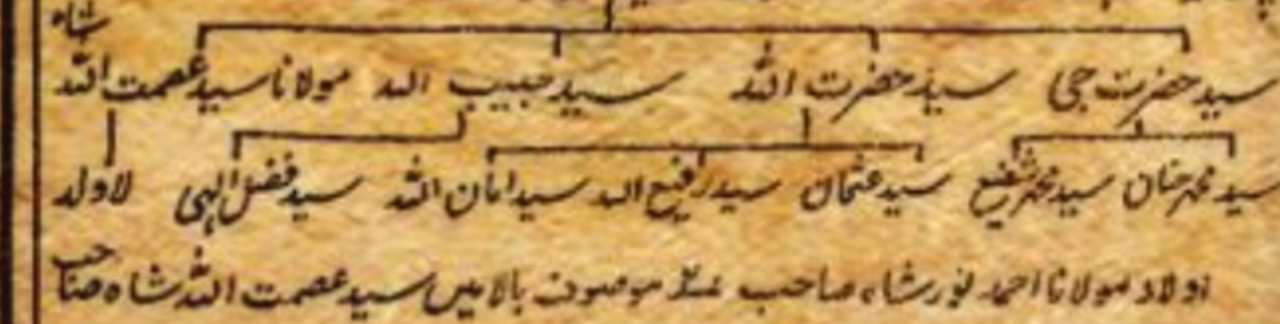 شاہ
سید حضرت جی سید حضرت اللہ سید حبیب اللہ مولانا سید عصمت اللہ
سید محمد حنان سید محمد شفیع سید عثمان سید رفیع اللہ سید امان اللہ سید فضل الہی لاولد
اولاد مولانا احمد نور شاہ صاحب موصوف بالا میں سید عصمت اللہ شاہ صاحب